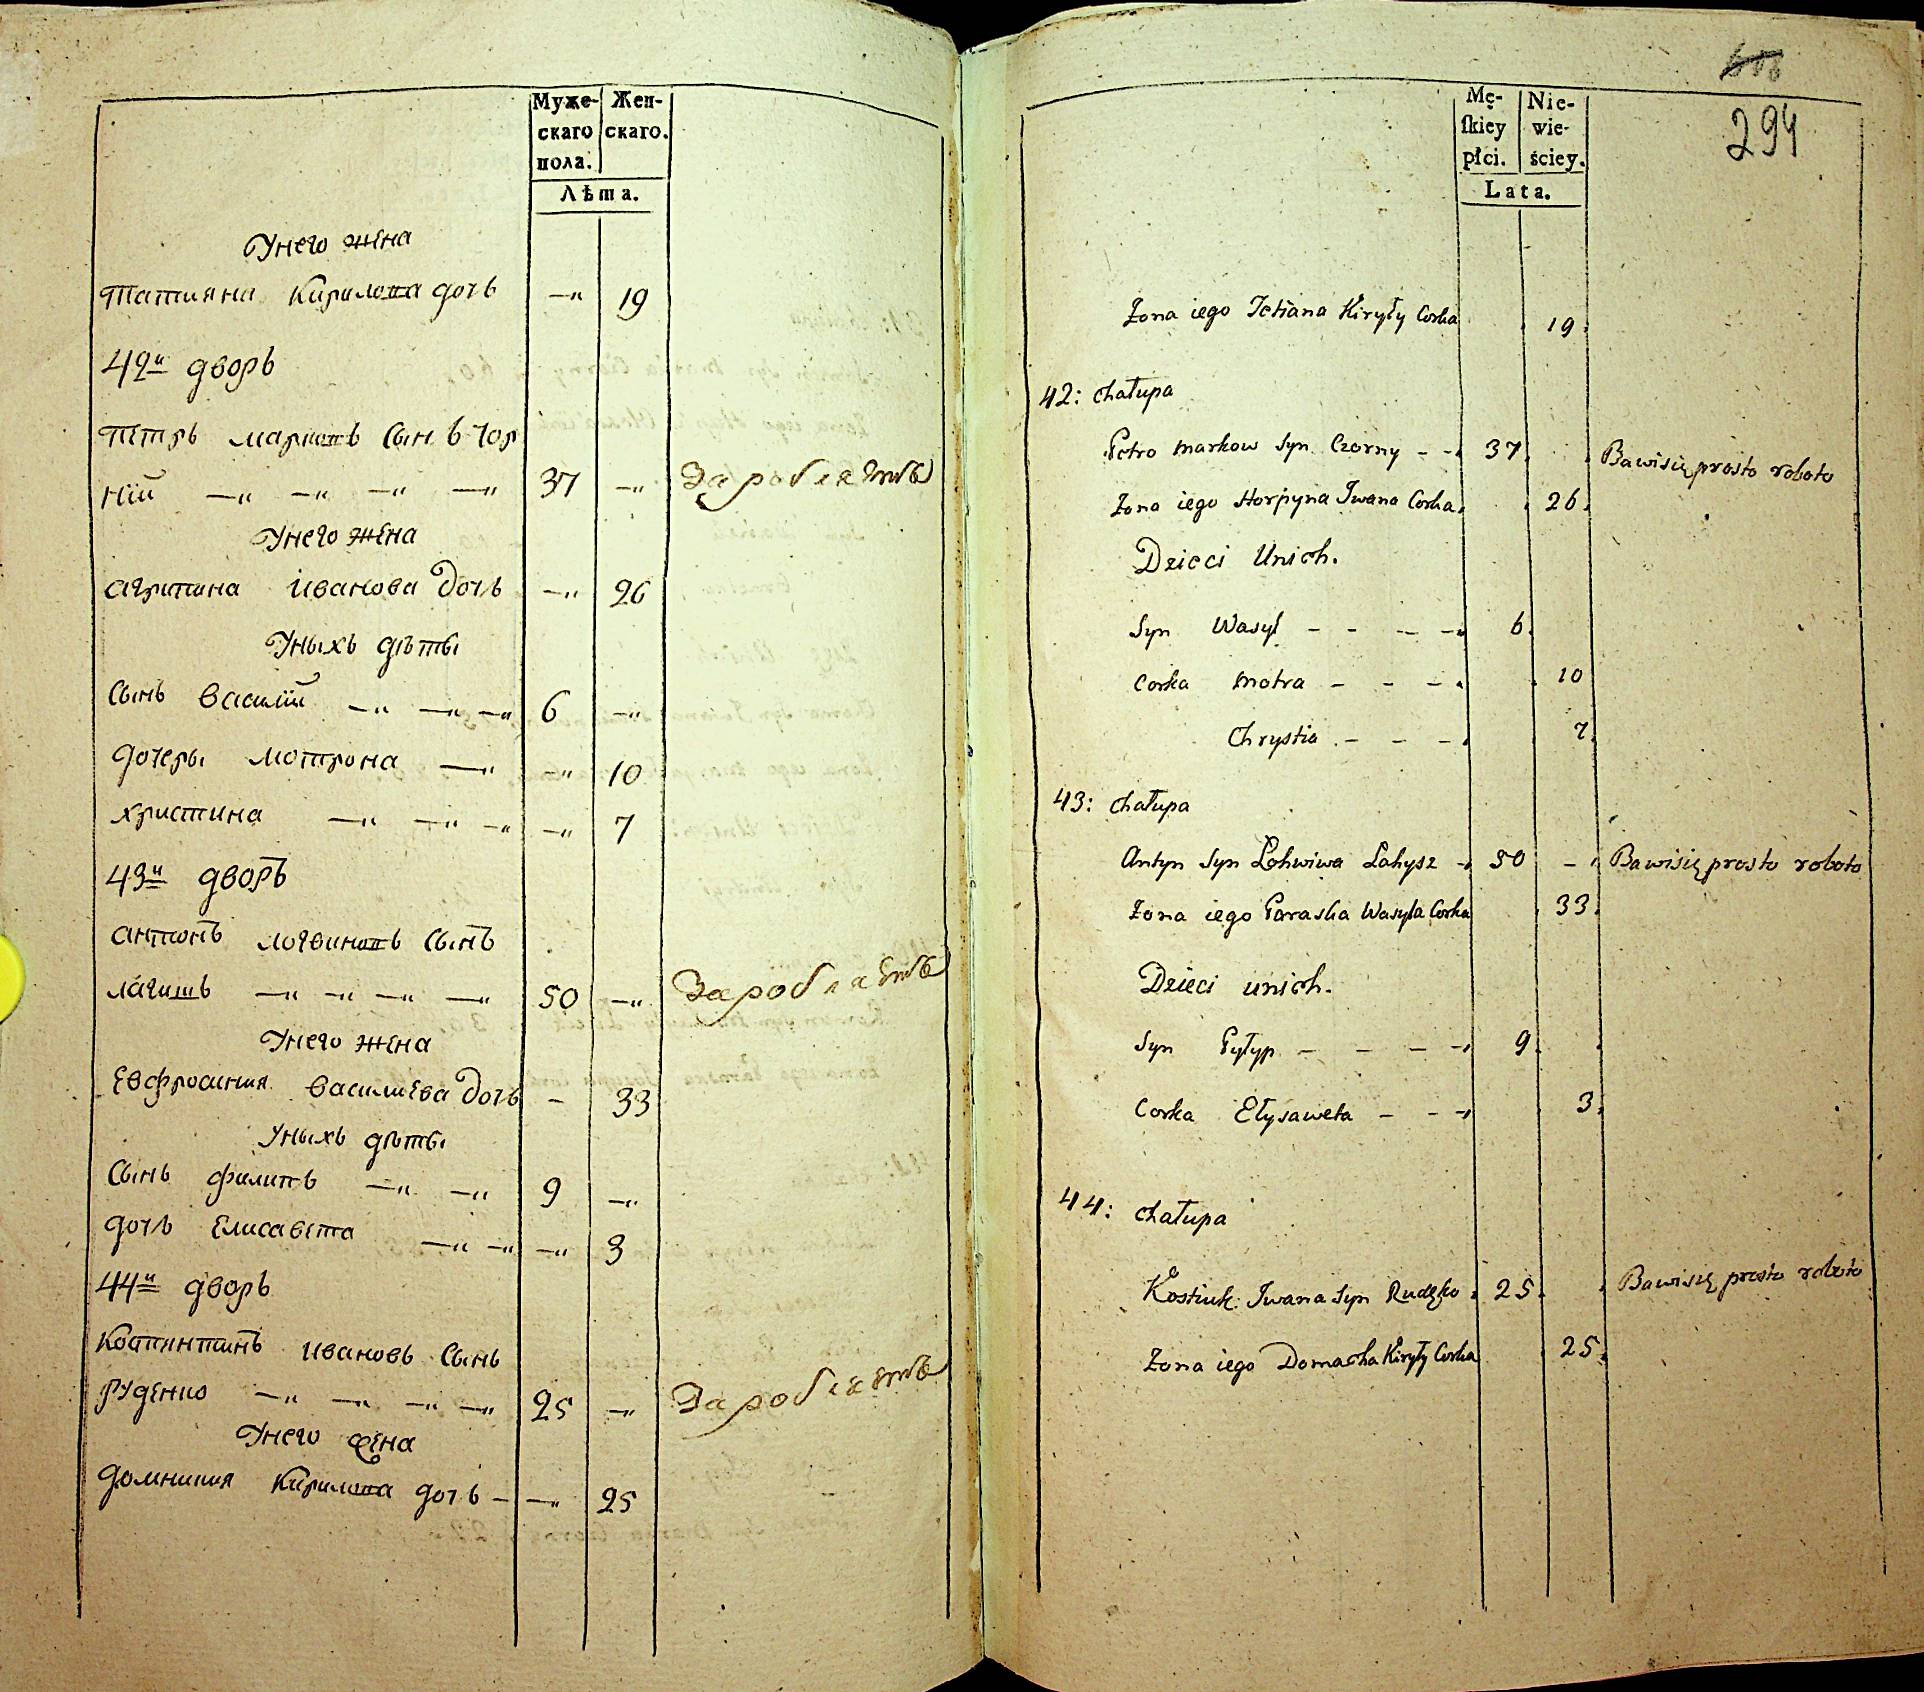 Муже- Жен-
скаго скаго.
пола.
Лѣта.
У него жена
Татияна Кирилова дочь —„ 19
42й дворъ
Петръ Марковъ сынъ Чор
ній —„ —„ —„ —„ 37 —„ Зароблаетъ
У него жена
Агрипина Иванова дочь —„ 26
У ныхъ дѣты
Сынъ Василій —„ —„ —„ 6 —„
дочеры Мотрона —„ —„ 10
Христина —„ —„ —„ —„ 7
43й дворъ
Антонъ Логвиновъ сынъ
Лагишъ —„ —„ —„ —„ 50 —„ Зароблаетъ
У него жена
Евфросиния Василиева дочь — 33
У ныхъ дѣты
Сынъ Филипъ —„ —„ 9 —„
дочь Елисавета —„ —„ —„ 3
44й дворъ
Костянтинъ Ивановъ сынъ
Руденко —„ —„ —„ —„ 25 —„ Зароблаетъ
У него жена
Домникия Кирилова дочь — —„ 25
294
Mę- Nie-
skiey wie-
płci. ściey.
Lata.
Żona iego Tetiana Kiryły Corka 19
42: chałupa
Petro Markow Syn Czorny - - 37 Bawisię prosto roboto
Żona iego Horpyna Iwana Corka 26
Dzieci Unich.
Syn Wasyl - - - - 6
Corka Motra - - - 10
Chrystia - - - 7
43: chałupa
Antyn Syn Lohwiwa Lahysz - 50 - Bawisię prosto roboto
Żona iego Paraska Wasyla Corka 33
Dzieci unich.
Syn Pyłyp - - - - 9
Corka Ełysaweta - - - 3
44: chałupa
Kostiuk Iwana Syn Rudęko 25 Bawisię prosto roboto
Żona iego Domacha Kiryły Corka 25